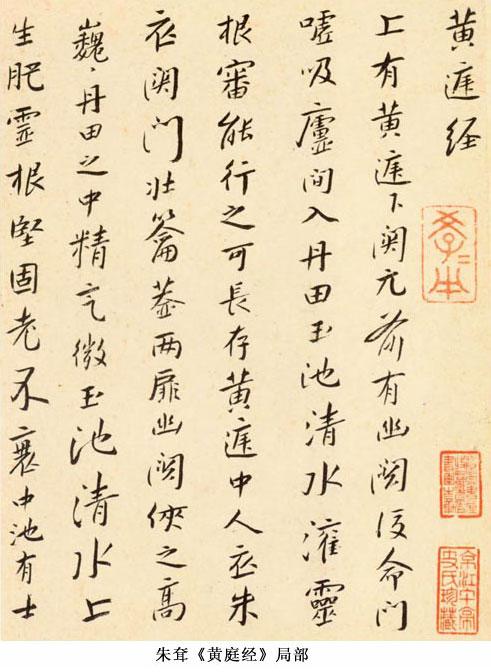 黄庭经
上有黄庭下関元前有幽闕后命门
嘘吸廬间入丹田玉池清水灌靈
根審能行之可長存黄庭中人衣朱
衣関门壮籥蓋两扉幽闕俠之高
巍〻丹田之中精气微玉池清水上
生肥霊根堅固老不衰中池有士
朱耷《黄庭经》局部